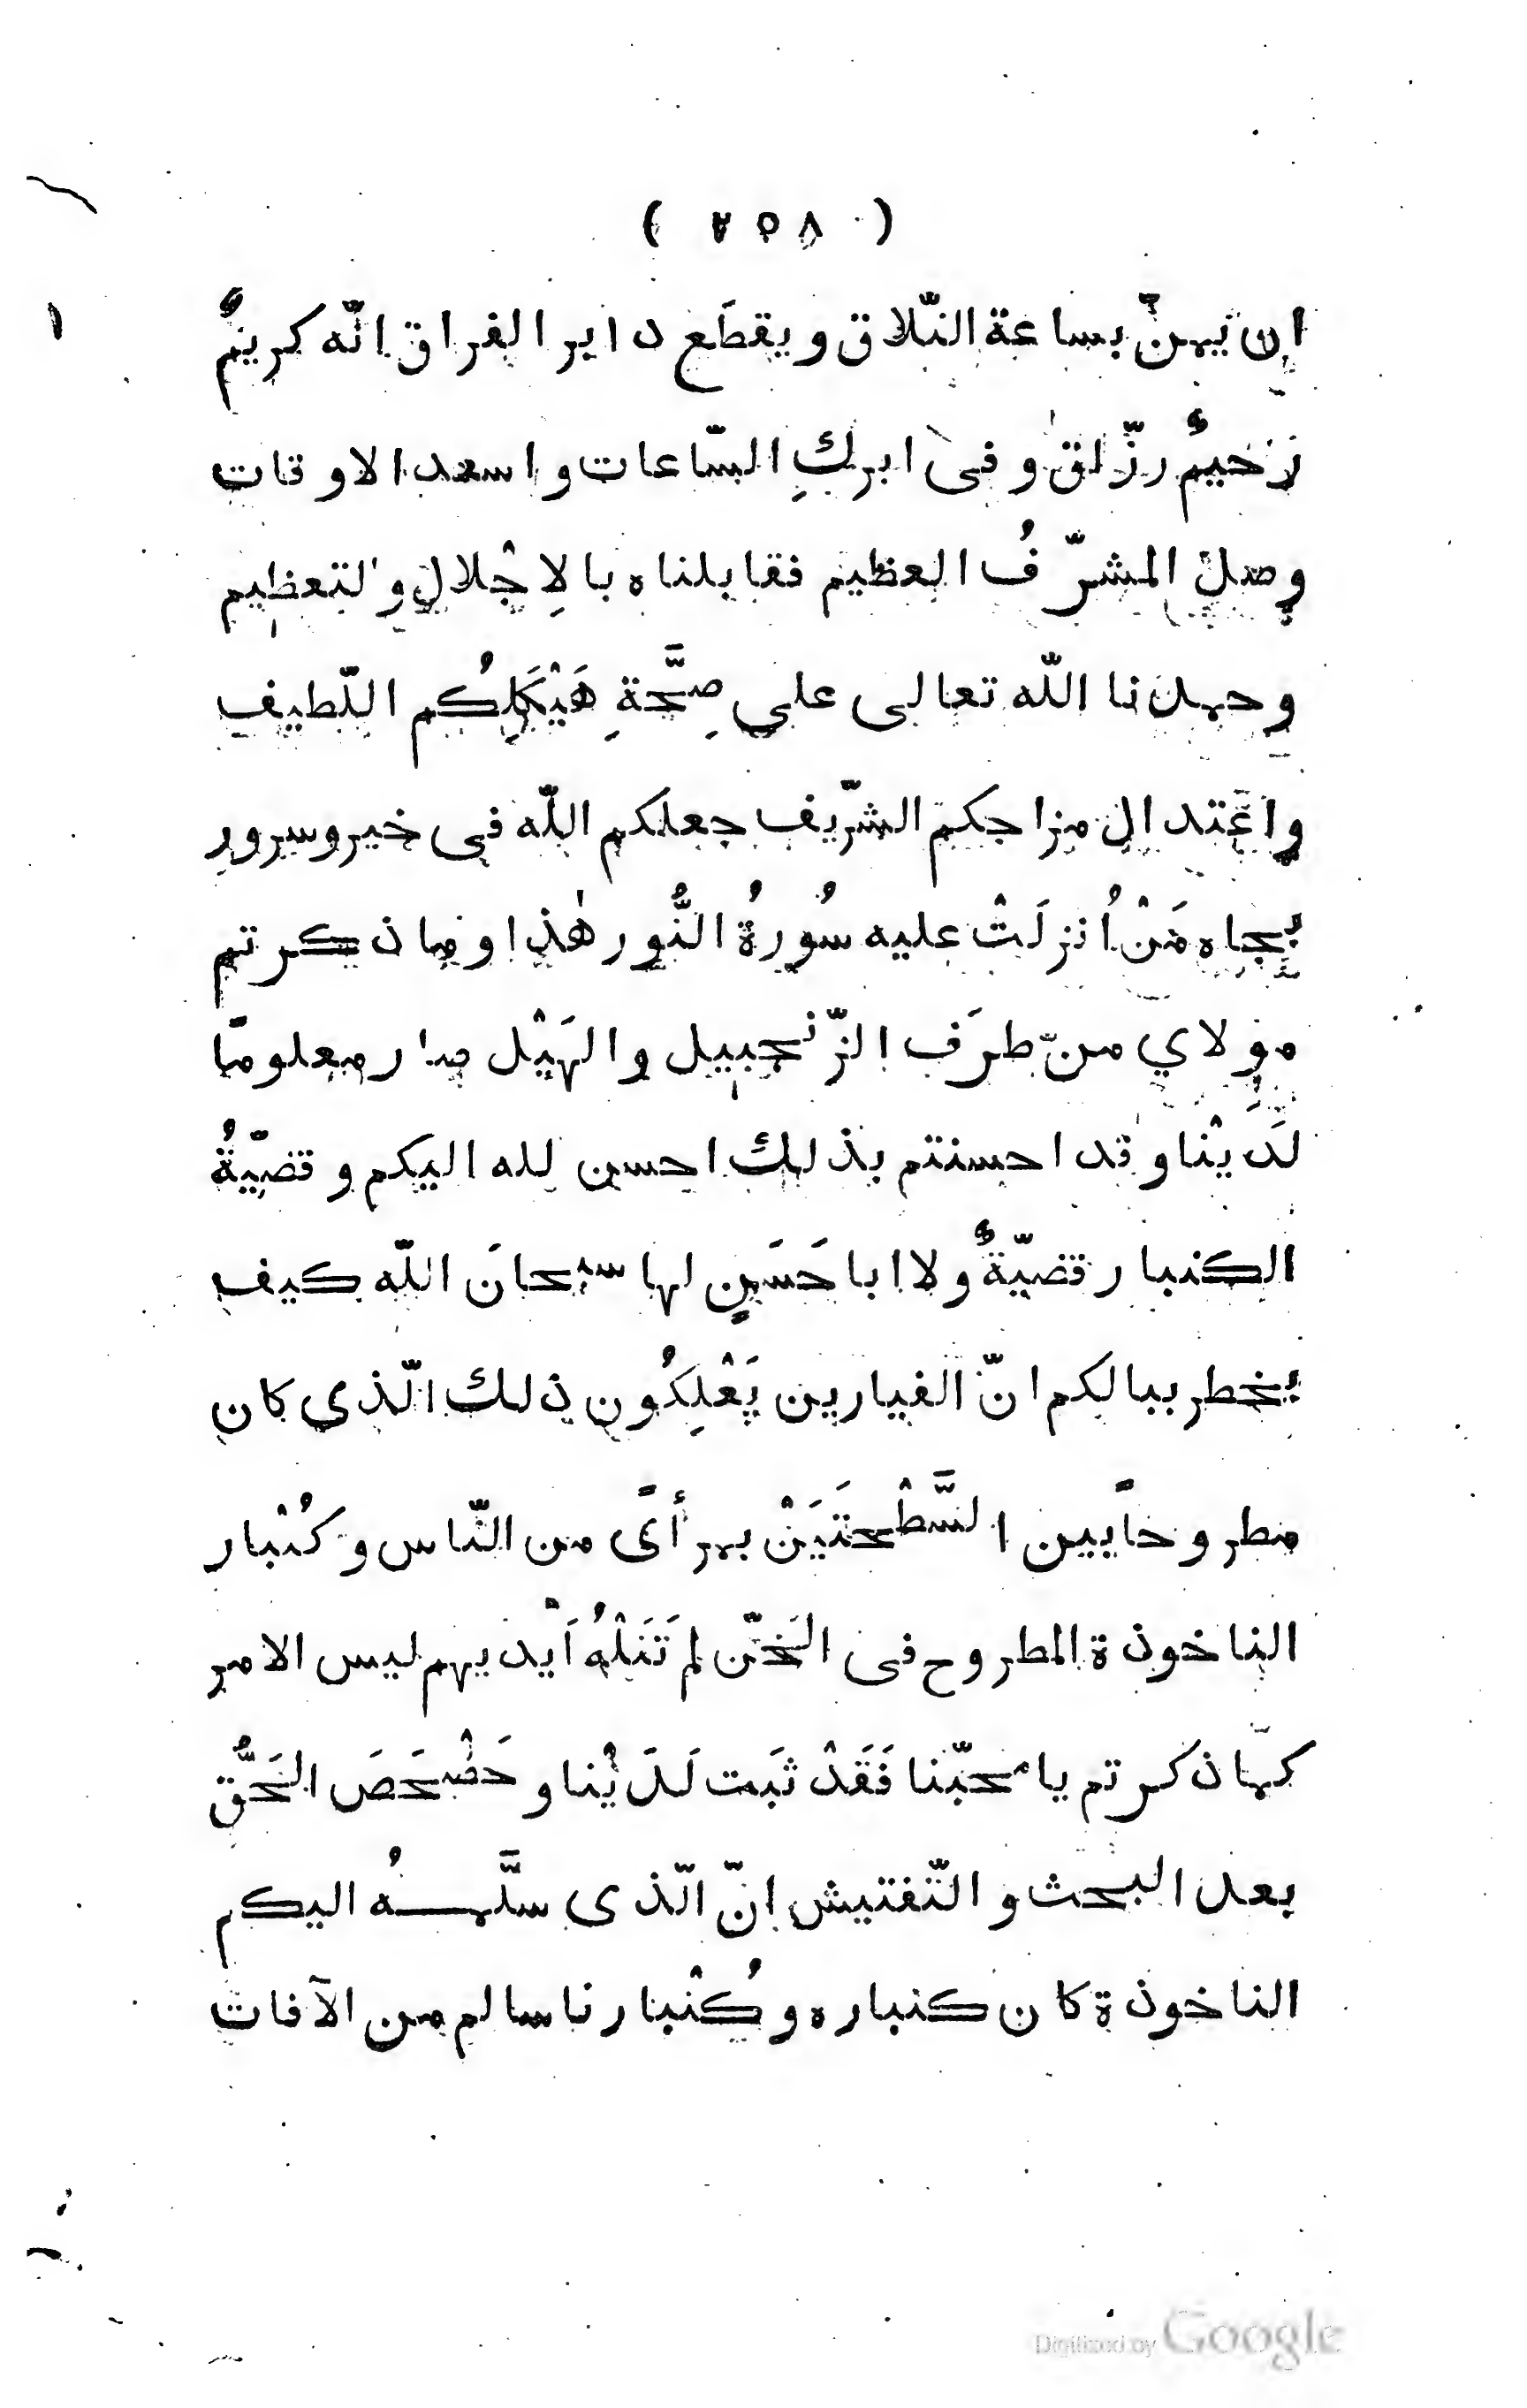 ( ٢٥٨ )
ان يمنّ بساعة التّلاق ويقطَع دابر الفراق انّه كريمٌ
رَحيمٌ رزّاق وفى ابركِ السّاعات واسعد الاوقات
وصل المشرّفُ العظيم فقابلناه بالاِجْلال والتعظيم
وحمدنا اللّه تعالى على صِحَّةِ هَيْكَلِكُم اللّطيف
واعْتدال مزاجكم الشّريف جعلكم اللّه فى خير وسرور
بجاه مَنْ اُنزلَتْ عليه سُورةُ النُّور هٰذا وما ذكرتم
مولاي من طرَف الزّنجبيل والهَيْل صار معلومًا
لَدَيْنا وقد احسنتم بذلك احسن لله اليكم وقضيّةُ
الكنبار قضيّةٌ ولا ابا حَسَنٍ لها سبْحانَ اللّه كيف
يخطر ببالكم انّ الفيارين يَعْلِكُون ذلك الّذى كان
مطروحاً بين السَّطْحتَيَنْ بمرأًى من النّاس وكُنْبار
الناخوذة المطروح فى الخَنّ لم تَنَلْهُ اَيْديهم ليس الامر
كمّا ذكرتم يا محبّنا فَقَدْ ثبَت لَدَيْنا وحَصْحَصَ الحَقُّ
بعد البحث والتّفتيش انّ الّذى سلَّمـهُ اليكم
الناخوذة كان كنباره وكُنْبارنا سالم من الآفات
Digitized by Google